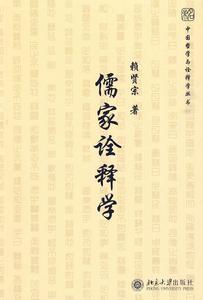 中国哲学与诠释学丛书
赖贤宗 著
儒家诠释学
北京大学出版社